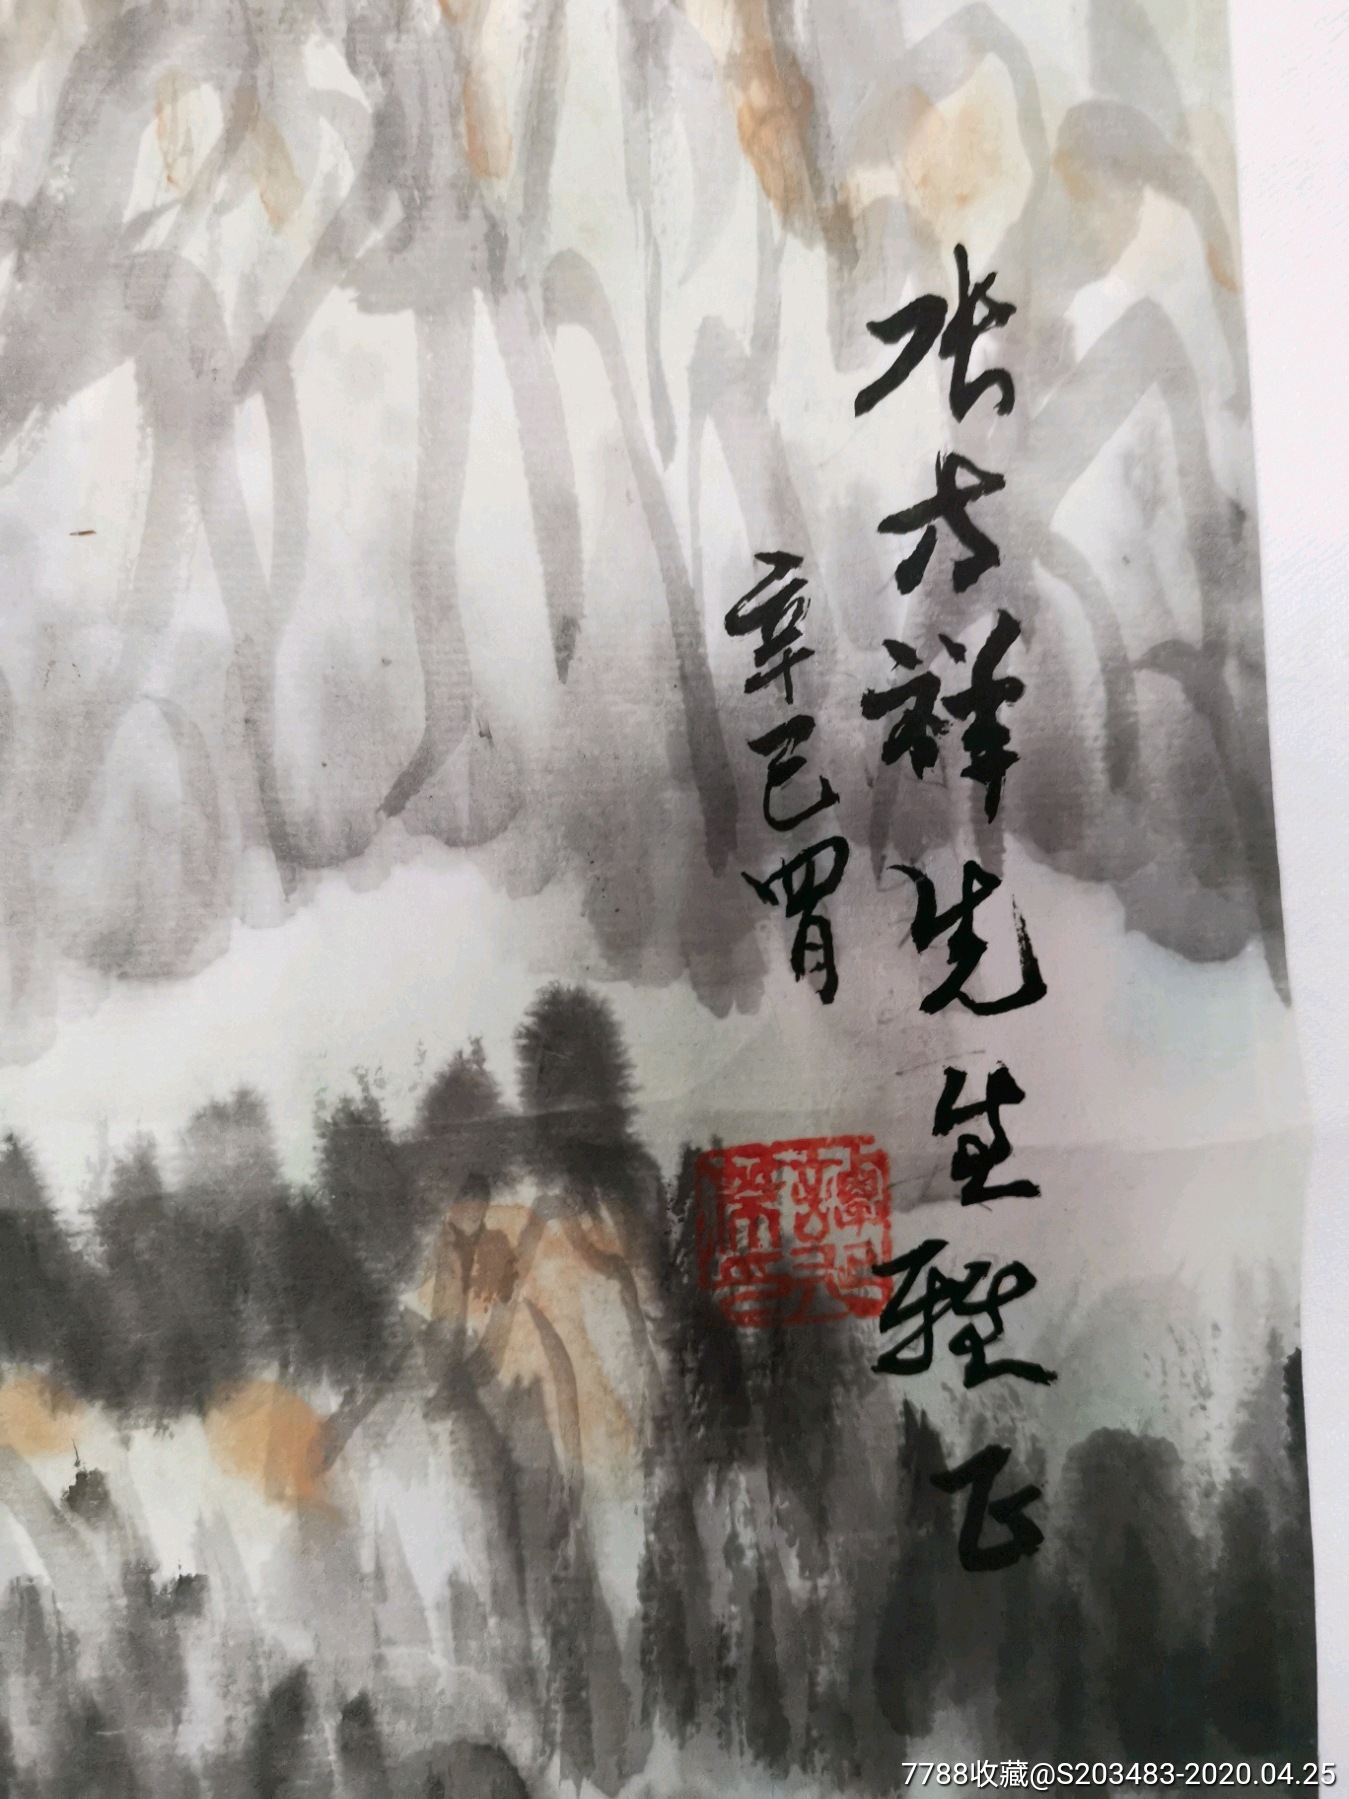 张方祥先生雅正
辛巳胃
7788收藏@S203483-2020.04.25